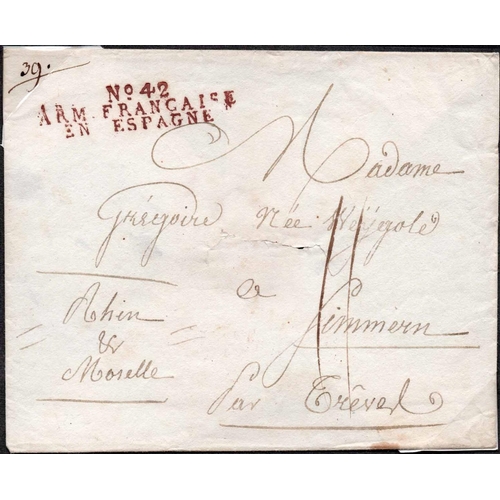 39.
No. 42
ARM. FRANÇAISE
EN ESPAGNE
Madame
Grégoire Née
a
Simmern
Rhin
&
Moselle
Par Trêves
11